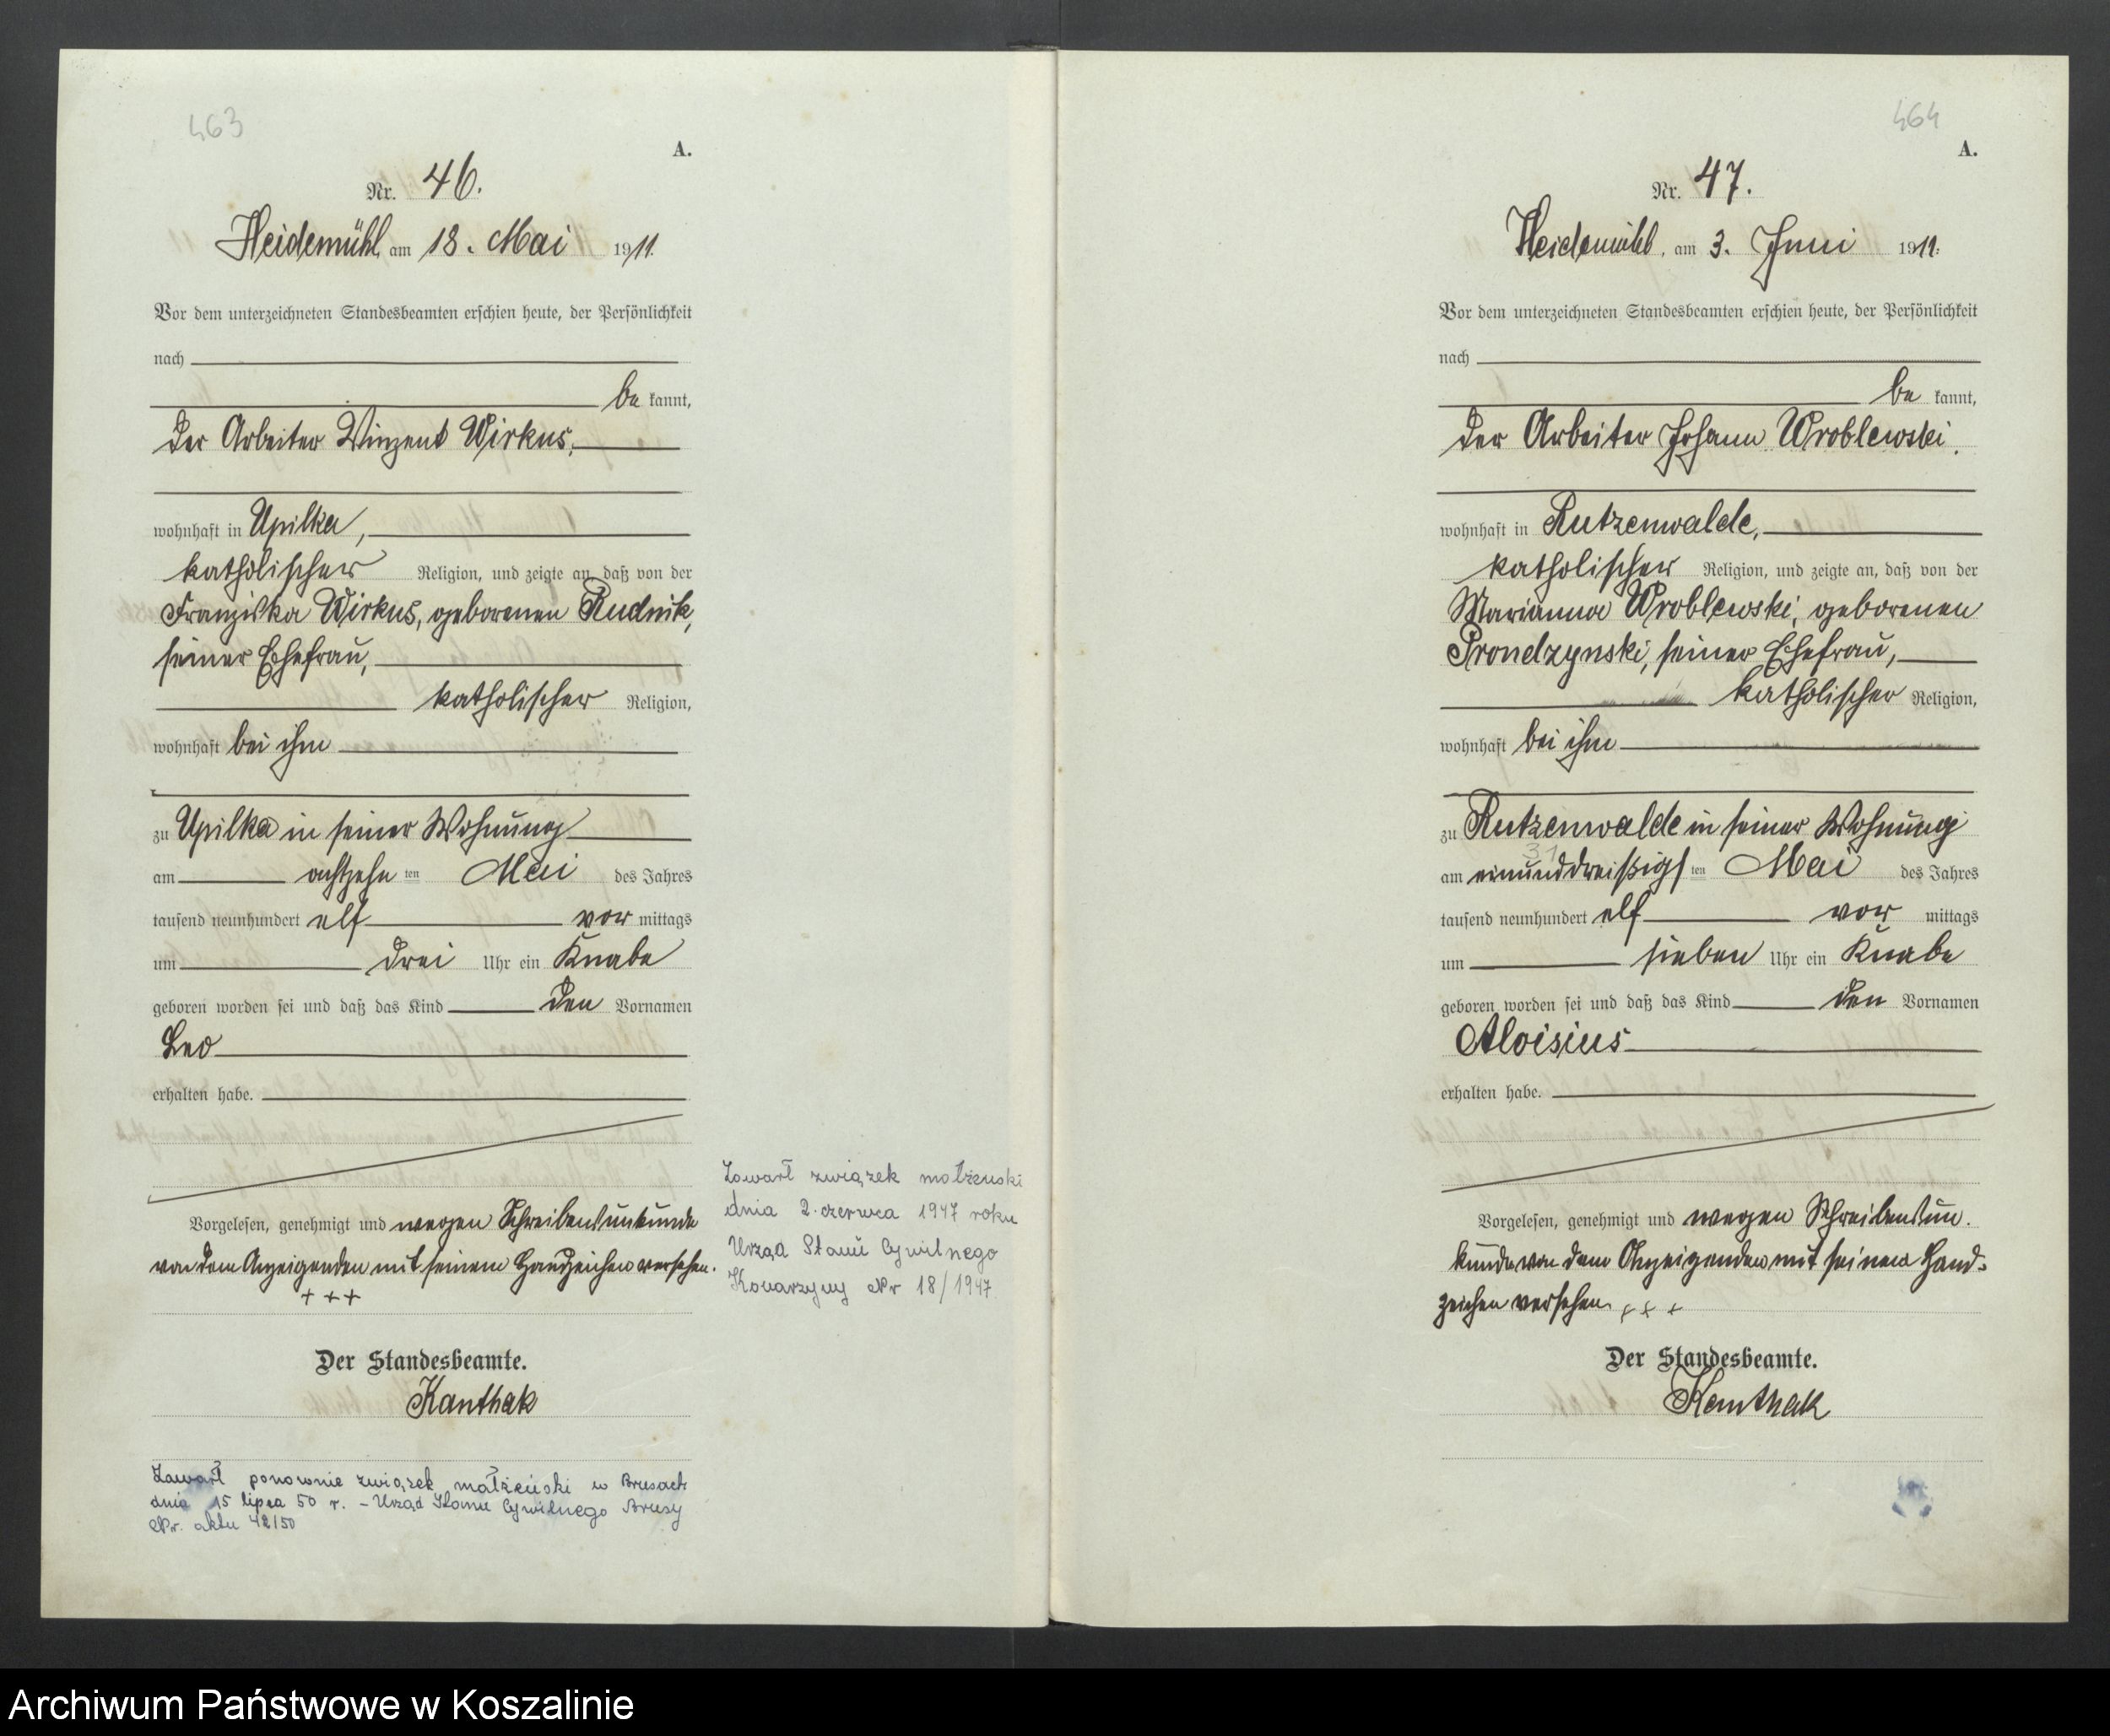 463
A.
Nr. 46.
Heidemühl, am 18. Mai 1911.
Vor dem unterzeichneten Standesbeamten erschien heute, der Persönlichkeit
nach
be kannt,
der Arbeiter Vinzent Wirkus,
wohnhaft in Upilka,
katholischer Religion, und zeigte an, daß von der
Franziska Wirkus, geborenen Rudnik,
seiner Ehefrau,
katholischer Religion,
wohnhaft bei ihm
zu Upilka in seiner Wohnung
am achtzehn ten Mai des Jahres
tausend neunhundert elf vor mittags
um drei Uhr ein Knabe
geboren worden sei und daß das Kind den Vornamen
Leo
erhalten habe.
Vorgelesen, genehmigt und wegen Schreibensunkunde
von dem Anzeigenden mit seinem Handzeichen versehen.
+ + +
Der Standesbeamte.
Kanthak
Zawarł ponownie związek małżeński w Brusach
dnia 15 lipca 50 r. – Urząd Stanu Cywilnego Brusy
Nr. aktu 42/50
Zawarł związek małżeński
dnia 2. czerwca 1947 roku
Urząd Stanu Cywilnego
Konarzyny Nr 18/1947
464
A.
Nr. 47.
Heidemühl, am 3. Juni 1911.
Vor dem unterzeichneten Standesbeamten erschien heute, der Persönlichkeit
nach
be kannt,
der Arbeiter Johann Wroblewski,
wohnhaft in Rutzenwalde,
katholischer Religion, und zeigte an, daß von der
Marianna Wroblewski, geborenen
Prondzynski, seiner Ehefrau,
katholischer Religion,
wohnhaft bei ihm
zu Rutzenwalde in seiner Wohnung
31
am einunddreißigs ten Mai des Jahres
tausend neunhundert elf vor mittags
um sieben Uhr ein Knabe
geboren worden sei und daß das Kind den Vornamen
Aloisius
erhalten habe.
Vorgelesen, genehmigt und wegen Schreibensun-
kunde von dem Anzeigenden mit seinem Hand-
zeichen versehen. + + +
Der Standesbeamte.
Kanthak
Archiwum Państwowe w Koszalinie